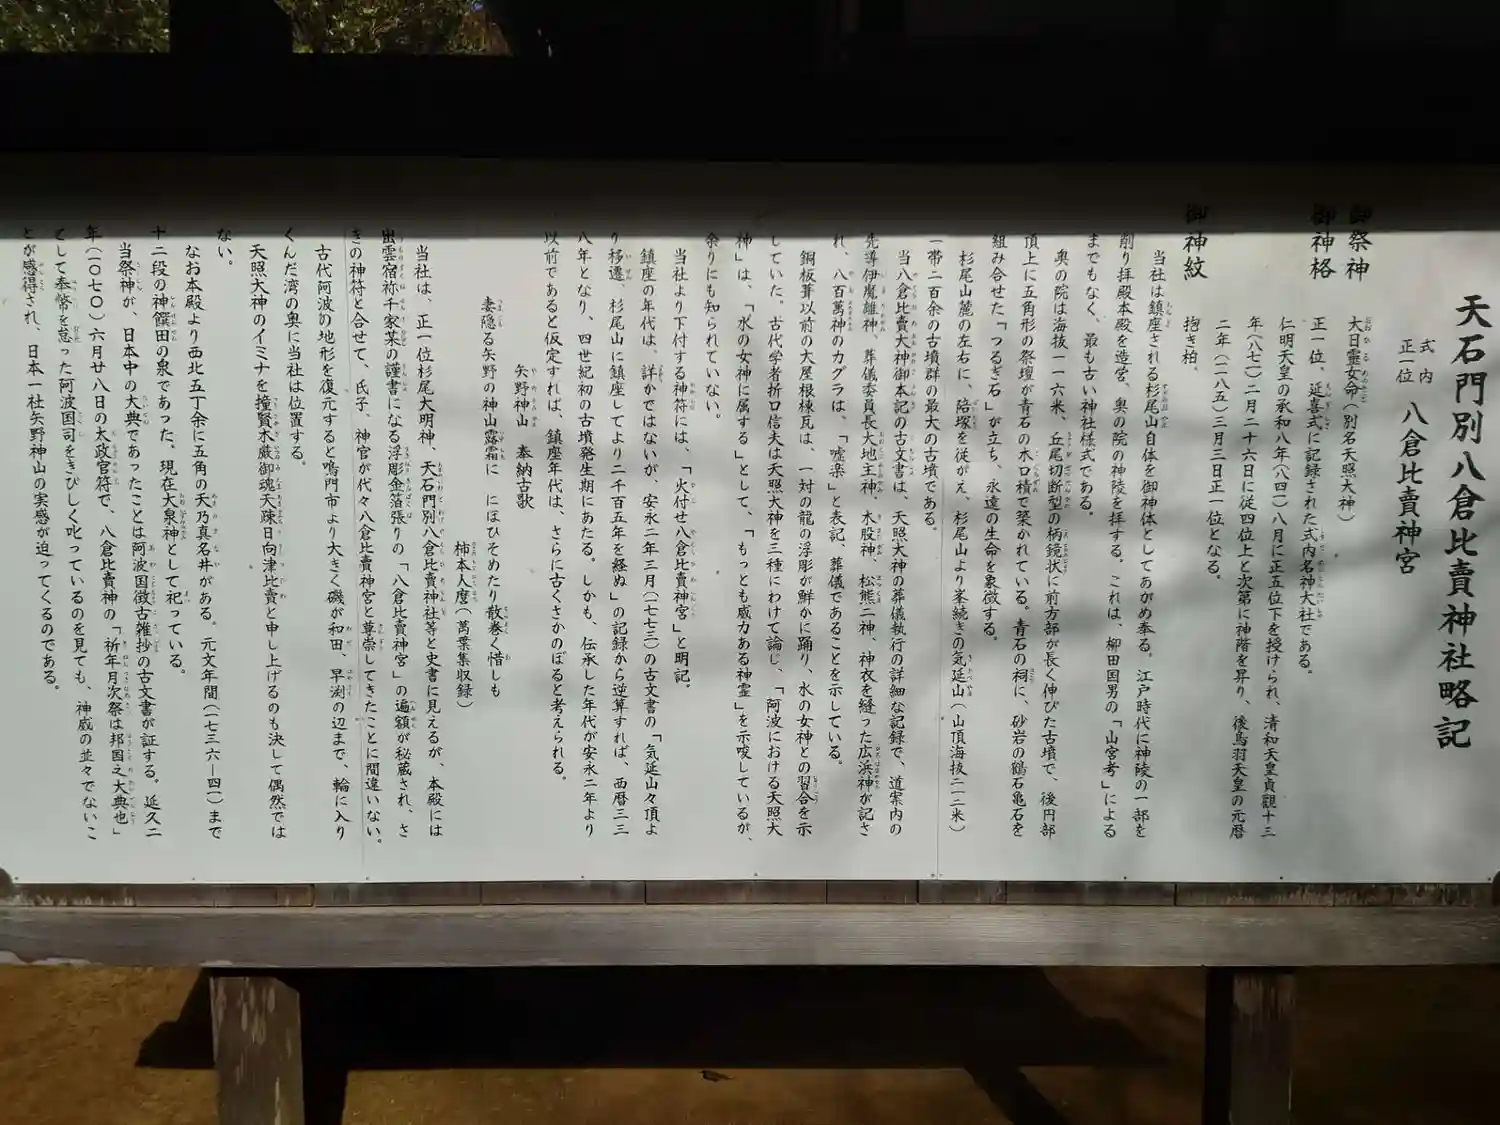 天石門別八倉比賣神社略記
式内
正一位 八倉比賣神宮
御祭神 大日靈女命(別名天照大神)
御神格 正一位、延喜式に記録された式内名神大社である。
仁明天皇の承和八年(八四一)八月に正五位下を授けられ、清和天皇貞觀十三
年(八七一)二月二十六日に従四位上と次第に神階を昇り、後鳥羽天皇の元暦
二年(一一八五)三月三日正一位となる。
御神紋 抱き柏。
当社は鎮座される杉尾山自体を御神体としてあがめ奉る。江戸時代に神陵の一部を
削り拝殿本殿を造営、奥の院の神陵を拝する。これは、柳田国男の「山宮考」による
までもなく、最も古い神社様式である。
奥の院は海抜一一六米、丘尾切断型の柄鏡状に前方部が長く伸びた古墳で、後円部
頂上に五角形の祭壇が青石の木口積で築かれている。青石の祠に、砂岩の鶴石亀石を
組み合せた「つるぎ石」が立ち、永遠の生命を象徴する。
杉尾山麓の左右に、陪塚を従がえ、杉尾山より峯続きの気延山(山頂海抜二一二米)
一帯二百余の古墳群の最大の古墳である。
当八倉比賣大神御本記の古文書は、天照大神の葬儀執行の詳細な記録で、道案内の
先導伊魔離神、葬儀委員長大地主神、木股神、松熊二神、神衣を縫った広浜神が記さ
れ、八百萬神のカグラは、「嘘楽」と表記、葬儀であることを示している。
銅板葺以前の大屋根棟瓦は、一対の龍の浮彫が鮮かに踊り、水の女神との習合を示
していた。古代学者折口信夫は天照大神を三種にわけて論じ、「阿波における天照大
神」は、「水の女神に属する」として、「もっとも威力ある神霊」を示唆しているが、
余りにも知られていない。
当社より下付する神符には、「火付せ八倉比賣神宮」と明記。
鎮座の年代は、詳かではないが、安永二年三月(一七七三)の古文書の「気延山々頂よ
り移遷、杉尾山に鎮座してより二千百五年を経ぬ」の記録から逆算すれば、西暦三三
八年となり、四世紀初の古墳発生期にあたる。しかも、伝承した年代が安永二年より
以前であると仮定すれば、鎮座年代は、さらに古くさかのぼると考えられる。
矢野神山 奉納古歌
妻隠る矢野の神山露霜に にほひそめたり散巻く惜しも
柿本人麿(萬葉集収録)
当社は、正一位杉尾大明神、天石門別八倉比賣神社等と史書に見えるが、本殿には
出雲宿祢千家某の謹書になる浮彫金箔張りの「八倉比賣神宮」の遍額が秘蔵され、さ
きの神符と合せて、氏子、神官が代々八倉比賣神宮と尊崇してきたことに間違いない。
古代阿波の地形を復元すると鳴門市より大きく磯が和田、早渕の辺まで、輪に入り
くんだ湾の奥に当社は位置する。
天照大神のイミナを撞賢木厳御魂天疎日向津比賣と申し上げるのも決して偶然では
ない。
なお本殿より西北五丁余に五角の天乃真名井がある。元文年間(一七三六―四一)まで
十二段の神饌田の泉であった。現在大泉神として祀っている。
当祭神が、日本中の大典であったことは阿波国徴古雑抄の古文書が証する。延久二
年(一〇七〇)六月廿八日の太政官符で、八倉比賣神の「祈年月次祭は邦国之大典也」
として奉幣を怠った阿波国司をきびしく叱っているのを見ても、神威の並々でないこ
とが感得され、日本一社矢野神山の実感が迫ってくるのである。